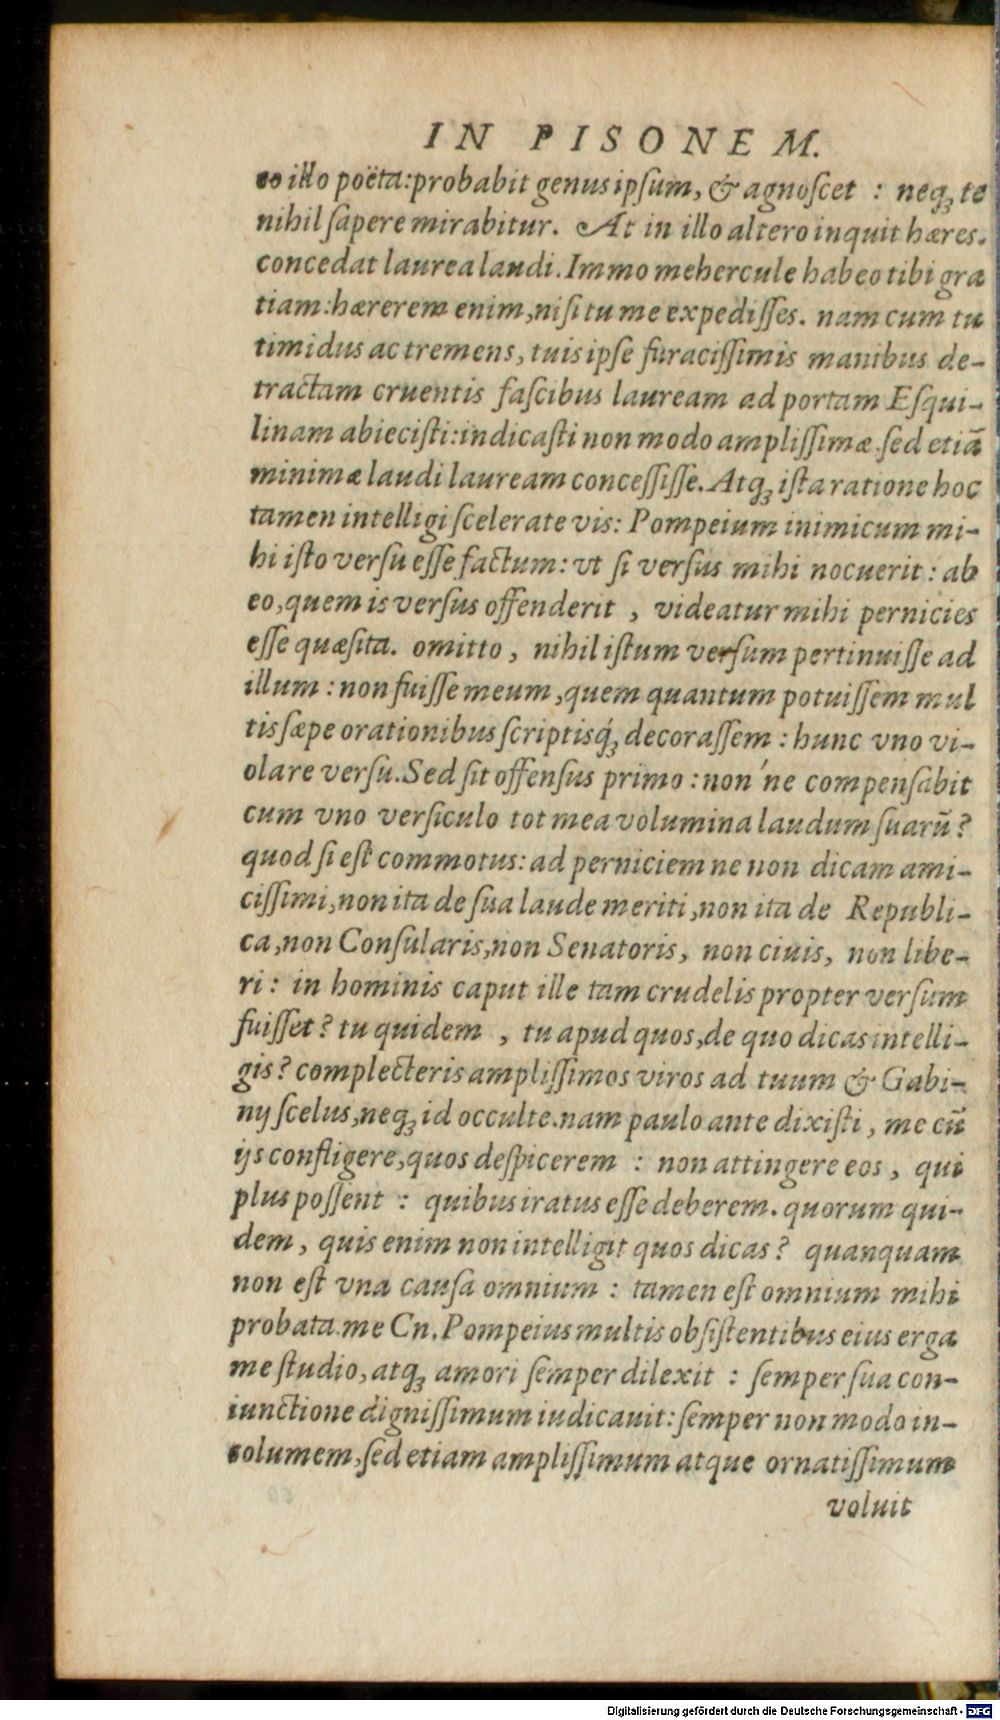 IN PISONEM.
eo illo poëta:probabit genus ipſum, & agnoſcet : neqꝫ te
nihil ſapere mirabitur. At in illo altero inquit hæres.
concedat laurea laudi. Immo mehercule habeo tibi gra
tiam:hærerem enim,niſi tu me expediſſes. nam cum tu
timidus ac tremens, tuis ipſe furaciſſimis manibus de-
tractam cruentis faſcibus lauream ad portam Eſqui-
linam abieciſti:indicaſti non modo ampliſſimæ ſed etiā
minimæ laudi lauream conceſſiſſe. Atqꝫ iſta ratione hoc
tamen intelligi ſcelerate vis: Pompeium inimicum mi-
hi iſto verſu eſſe factum: vt ſi verſus mihi nocuerit: ab
eo,quem is verſus offenderit , videatur mihi pernicies
eſſe quæſita. omitto, nihil iſtum verſum pertinuiſſe ad
illum : non fuiſſe meum,quem quantum potuiſſem mul
tis ſæpe orationibus ſcriptisq́ꝫ decoraſſem : hunc vno vi-
olare verſu. Sed ſit offenſus primo : non´ne compenſabit
cum vno verſiculo tot mea volumina laudum ſuarū?
quod ſi eſt commotus: ad perniciem ne non dicam ami-
ciſſimi,non ita de ſua laude meriti,non ita de Republi-
ca,non Conſularis,non Senatoris, non ciuis, non libe-
ri: in hominis caput ille tam crudelis propter verſum
fuiſſet? tu quidem , tu apud quos,de quo dicas intelli-
gis? complecteris ampliſſimos viros ad tuum & Gabi-
nij ſcelus,neqꝫ id occulte.nam paulo ante dixiſti, me cū
ijs confligere,quos deſpicerem : non attingere eos, qui
plus poſſent : quibus iratus eſſe deberem. quorum qui-
dem, quis enim non intelligit quos dicas? quanquam
non eſt vna cauſa omnium : tamen eſt omnium mihi
probata.me Cn. Pompeius multis obſiſtentibus eius erga
me ſtudio,atqꝫ amori ſemper dilexit : ſemper ſua con-
iunctione digniſſimum iudicauit:ſemper non modo in-
columem,ſed etiam ampliſſimum atque ornatiſſimum
voluit
Digitalisierung gefördert durch die Deutsche Forschungsgemeinschaft - DFG